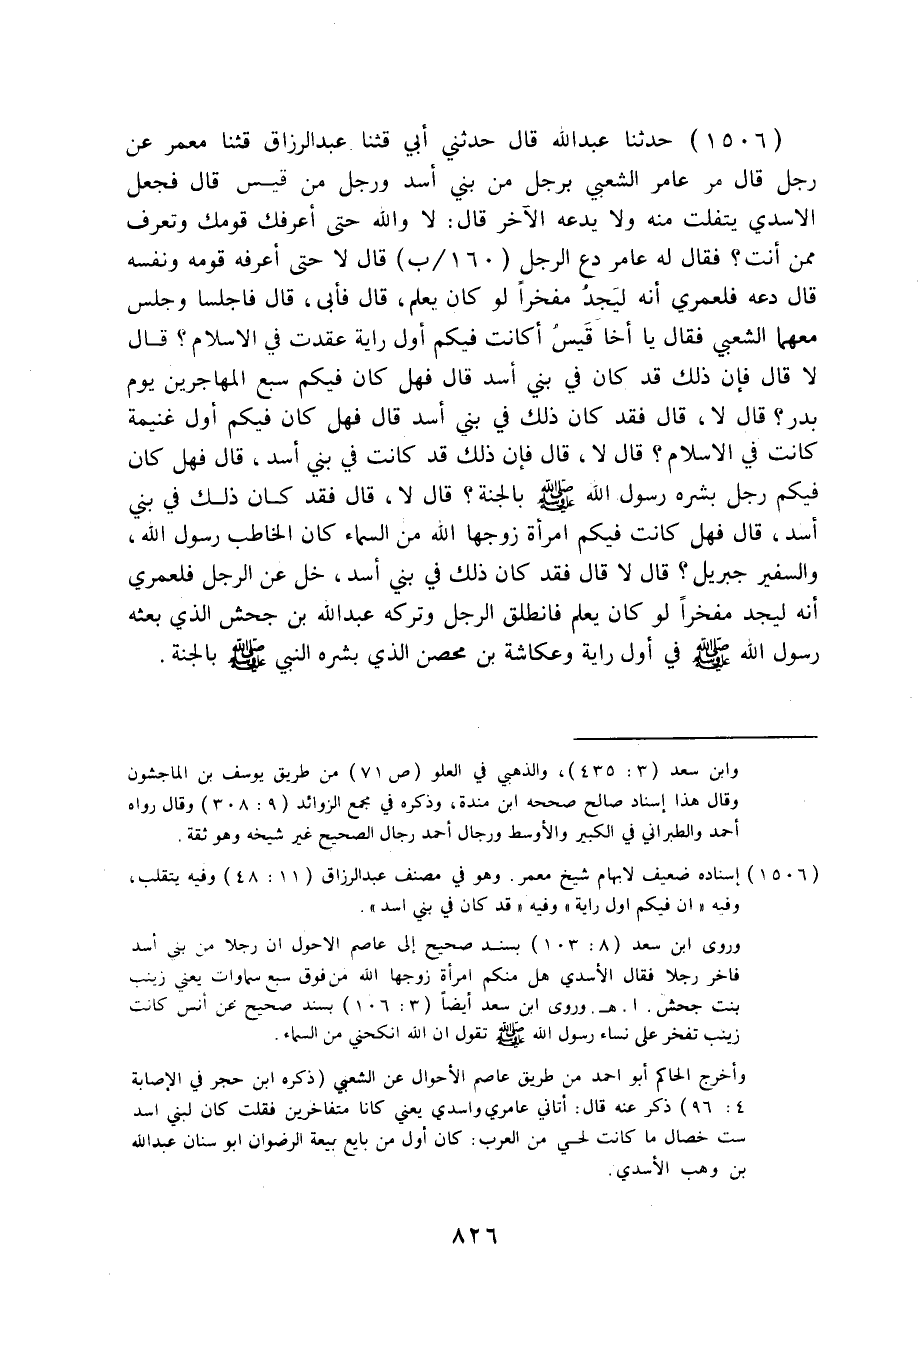 (١٥٠٦) حدثنا عبدالله قال حدثني أبي قثنا عبدالرزاق قثنا معمر عن
رجل قال مر عامر الشعبي برجل من بني أسد ورجل من قيس قال فجعل
الاسدي يتفلت منه ولا يدعه الآخر قال: لا والله حتى أعرفك قومك وتعرف
ممن أنت؟ فقال له عامر دع الرجل (١٦٠/ب) قال لا حتى أعرفه قومه ونفسه
قال دعه فلعمري أنه ليَجدُ مفخراً لو كان يعلم، قال فأبى، قال فاجلسا وجلس
معهما الشعبي فقال يا أخا قَيسُ أكانت فيكم أول راية عقدت في الاسلام؟ قال
لا قال فإن ذلك قد كان في بني أسد قال فهل كان فيكم سبع المهاجرين يوم
بدر؟ قال لا، قال فقد كان ذلك في بني أسد قال فهل كان فيكم أول غنيمة
كانت في الاسلام؟ قال لا، قال فإن ذلك قد كانت في بني أسد، قال فهل كان
فيكم رجل بشره رسول الله ﷺ بالجنة؟ قال لا، قال فقد كان ذلك في بني
أسد، قال فهل كانت فيكم امرأة زوجها الله من السماء كان الخاطب رسول الله،
والسفير جبريل؟ قال لا قال فقد كان ذلك في بني أسد، خل عن الرجل فلعمري
أنه ليجد مفخراً لو كان يعلم فانطلق الرجل وتركه عبدالله بن جحش الذي بعثه
رسول الله ﷺ في أول راية وعكاشة بن محصن الذي بشره النبي ﷺ بالجنة.
وابن سعد (٣: ٤٣٥)، والذهبي في العلو (ص ٧١) من طريق يوسف بن الماجشون
وقال هذا إسناد صالح صححه ابن مندة، وذكره في مجمع الزوائد (٩: ٣٠٨) وقال رواه
أحمد والطبراني في الكبير والأوسط ورجال أحمد رجال الصحيح غير شيخه وهو ثقة.
(١٥٠٦) إسناده ضعيف لابهام شيخ معمر. وهو في مصنف عبدالرزاق (١١: ٤٨) وفيه يتقلب،
وفيه «ان فيكم اول راية» وفيه «قد كان في بني اسد».
وروى ابن سعد (٨: ١٠٣) بسند صحيح إلى عاصم الاحول ان رجلا من بني أسد
فاخر رجلا فقال الأسدي هل منكم امرأة زوجها الله من فوق سبع سماوات يعني زينب
بنت جحش. ا. هـ. وروى ابن سعد أيضاً (٣: ١٠٦) بسند صحيح عن أنس كانت
زينب تفخر على نساء رسول الله ﷺ تقول ان الله انكحني من السماء.
وأخرج الحاكم أبو احمد من طريق عاصم الأحوال عن الشعبي (ذكره ابن حجر في الإصابة
٤: ٩٦) ذكر عنه قال: أتاني عامري واسدي يعني كانا متفاخرين فقلت كان لبني اسد
ست خصال ما كانت لحي من العرب: كان أول من بايع بيعة الرضوان ابو سنان عبدالله
بن وهب الأسدي.
٨٢٦